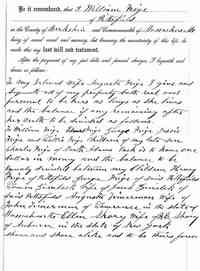 Be it remembered, that I, William Weije
of Pittsfield
in the County of Berkshire and Commonwealth of Massachusetts
being of sound mind and memory, but knowing the uncertainty of this life, do
make this my last will and testament.
After the payment of my just debts and funeral charges, I bequeath and
devise as follows:
To my beloved wife Augusta Weije I give and
bequeath all of my property both real and
personal to be hers as long as she lives
and the balance if any remaining after
her death to be divided as follows.
To William Weije George Weije
Weije and children of my late son
Charles Weije of North Adams Mass to
dollars in money and the balance to be
equally divided between my children Henry
Weije of Pittsfield George Weije of said Pittsfield
Louisa wife of
of said Pittsfield Augusta Zimmerman wife of
John Zimmerman of Lawrence in the state of
Massachusetts Ellen wife of
of Auburn in the state of New York
share and share alike and to be theirs forever